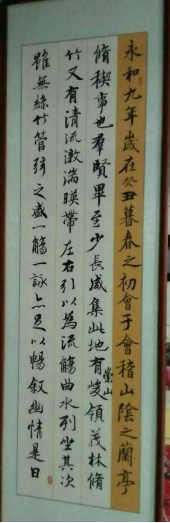 永和九年歲在癸丑暮春之初會于會稽山陰之蘭亭
脩稧事也羣賢畢至少長咸集此地有崇山峻領茂林脩
竹又有清流激湍暎帶左右引以為流觴曲水列坐其次
雖無絲竹管弦之盛一觴一詠亦足以暢叙幽情是日